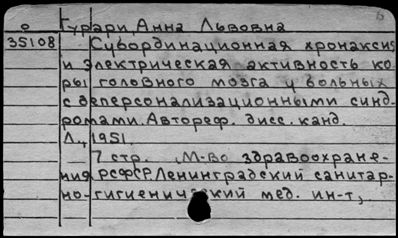 о Гурари, Анна Львовна
35108 Субординационная хронаксия
и электрическая активность ко-
ры головного мозга у больных
с деперсонализационными синд-
ромами. Автореф. дисс. канд.
Л., 1951.
7 стр. (М-во здравоохране-
ния РСФСР. Ленинградский санитар-
но-гигиенический мед. ин-т).